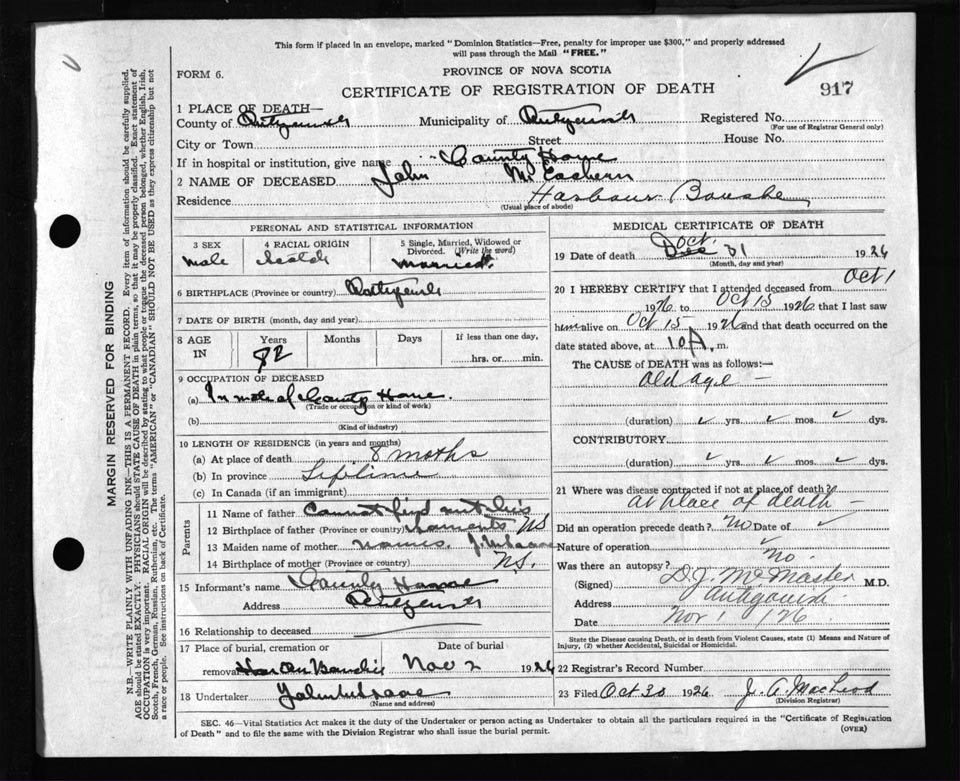 This form if placed in an envelope, marked "Dominion Statistics—Free, penalty for improper use $300," and properly addressed
will pass through the Mail "FREE."
FORM 6.
PROVINCE OF NOVA SCOTIA
CERTIFICATE OF REGISTRATION OF DEATH
917
1 PLACE OF DEATH—
County of Antigonish Municipality of Antigonish Registered No.
(For use of Registrar General only)
City or Town Street House No.
If in hospital or institution, give name County Home
2 NAME OF DECEASED John McEachern
Residence Harbour Boushe
(Usual place of abode)
PERSONAL AND STATISTICAL INFORMATION
3 SEX 4 RACIAL ORIGIN 5 Single, Married, Widowed or Divorced. (Write the word)
male Scotch married
6 BIRTHPLACE (Province or country) Antigonish
7 DATE OF BIRTH (month, day and year)
8 AGE IN Years Months Days If less than one day,
82 hrs. or min.
9 OCCUPATION OF DECEASED
(a) Inmate of County Home
(Trade or occupation or kind of work)
(b)
(Kind of industry)
10 LENGTH OF RESIDENCE (in years and months)
(a) At place of death 8 moths
(b) In province Lifetime
(c) In Canada (if an immigrant)
Parents
11 Name of father Cannot find out his
12 Birthplace of father (Province or country) parents NS
13 Maiden name of mother names.
14 Birthplace of mother (Province or country) N.S.
15 Informant's name County Home
Address Antigonish
16 Relationship to deceased
17 Place of burial, cremation or Date of burial
removal Nov 2 1926
18 Undertaker John McIsaac
(Name and address)
MEDICAL CERTIFICATE OF DEATH
19 Date of death Dec Oct. 31 1926
(Month, day and year)
20 I HEREBY CERTIFY that I attended deceased from Oct 1
1926 to Oct 15 1926 that I last saw
him alive on Oct 15 1926 and that death occurred on the
date stated above, at 10 A. m.
The CAUSE of DEATH was as follows:
Old age —
(duration) yrs. mos. dys.
CONTRIBUTORY
(duration) yrs. mos. dys.
21 Where was disease contracted if not at place of death?
At place of death —
Did an operation precede death? No Date of
Nature of operation
Was there an autopsy? No.
(Signed) D. J. McMaster M.D.
Address Antigonish
Date Nov 1 /26
State the Disease causing Death, or in death from Violent Causes, state (1) Means and Nature of
Injury, (2) whether Accidental, Suicidal or Homicidal.
22 Registrar's Record Number
23 Filed Oct 30 1926 J. A. MacLeod
(Division Registrar)
SEC. 46—Vital Statistics Act makes it the duty of the Undertaker or person acting as Undertaker to obtain all the particulars required in the "Certificate of Registration
of Death" and to file the same with the Division Registrar who shall issue the burial permit.
(OVER)
MARGIN RESERVED FOR BINDING
N.B.—WRITE PLAINLY WITH UNFADING INK—THIS IS A PERMANENT RECORD. Every item of information should be carefully supplied.
AGE should be stated EXACTLY. PHYSICIANS should STATE CAUSE OF DEATH in plain terms, so that it may be properly classified. Exact statement of
OCCUPATION is very important. RACIAL ORIGIN will be described by stating to what people or tongue the deceased person belonged, whether English, Irish,
Scotch, French, German, Russian, Ruthenian, etc. The terms "AMERICAN" or "CANADIAN" SHOULD NOT BE USED as they express citizenship but not
a race or people. See instructions on back of Certificate.